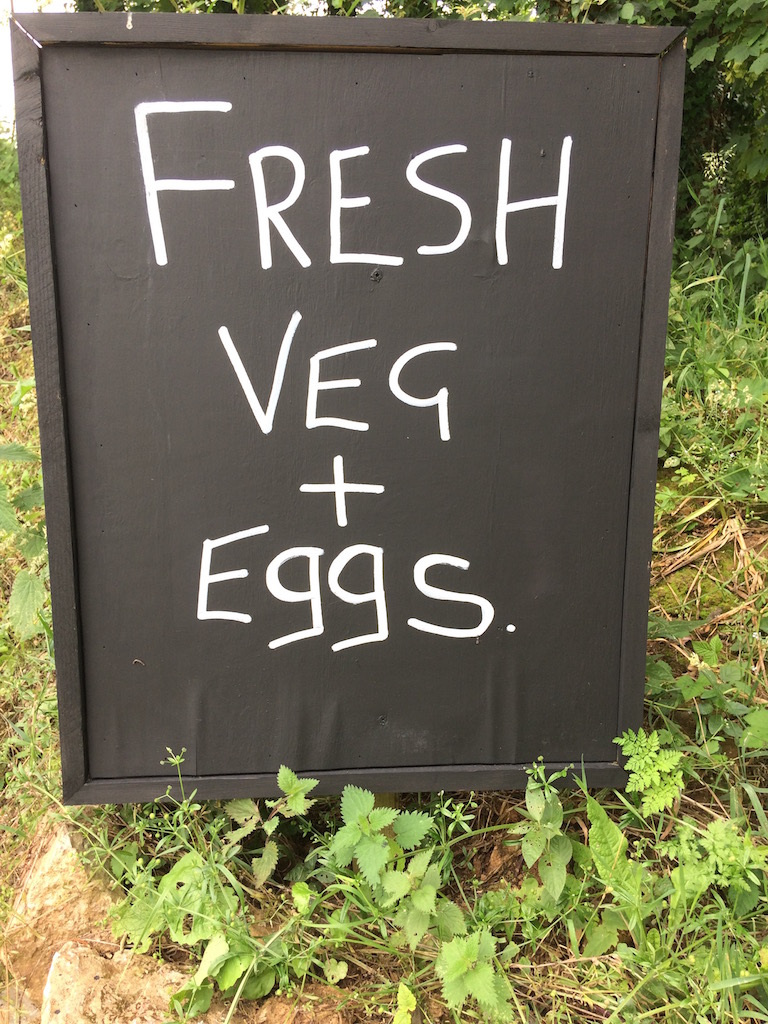 FRESH
VEG
+
Eggs.